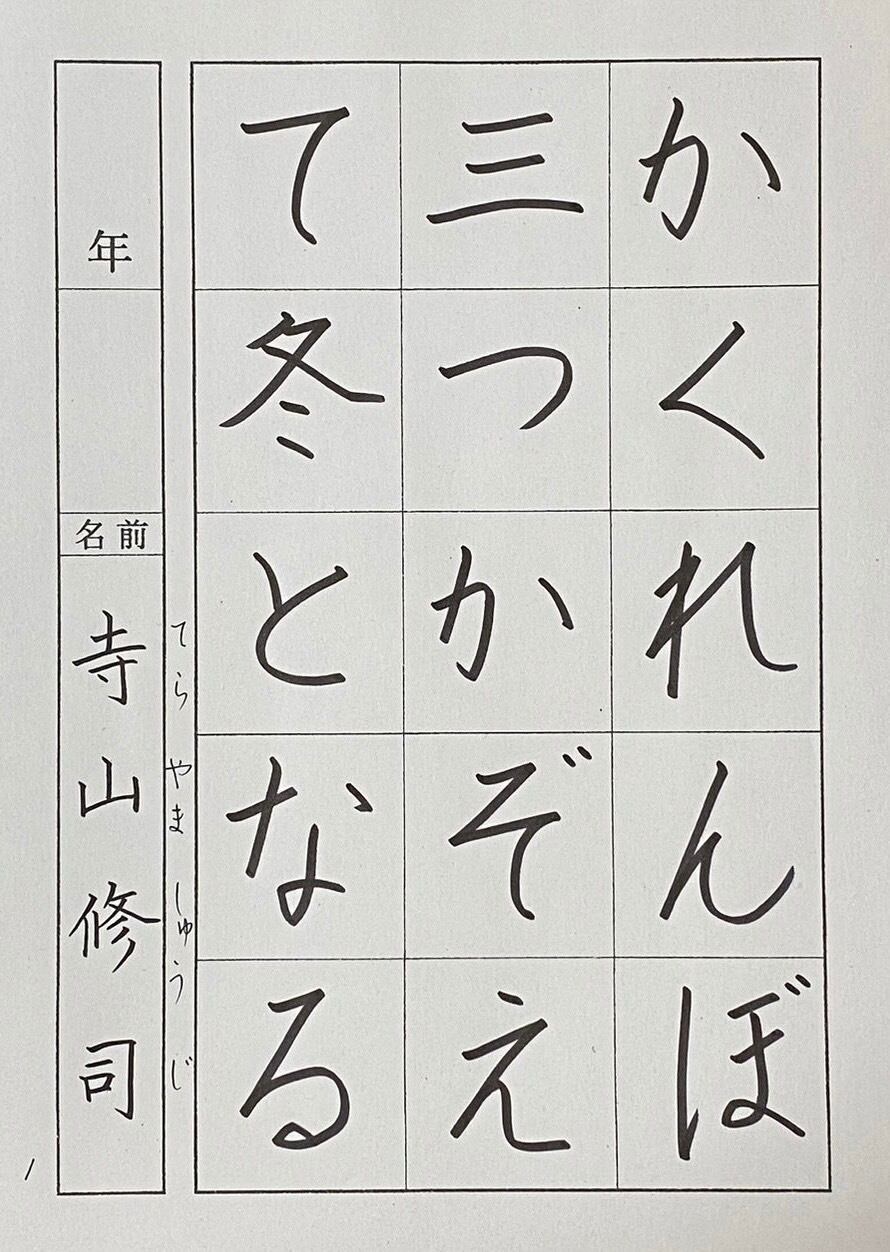 かくれんぼ
三つかぞえ
て冬となる
てらやましゅうじ
年
名前
寺山修司